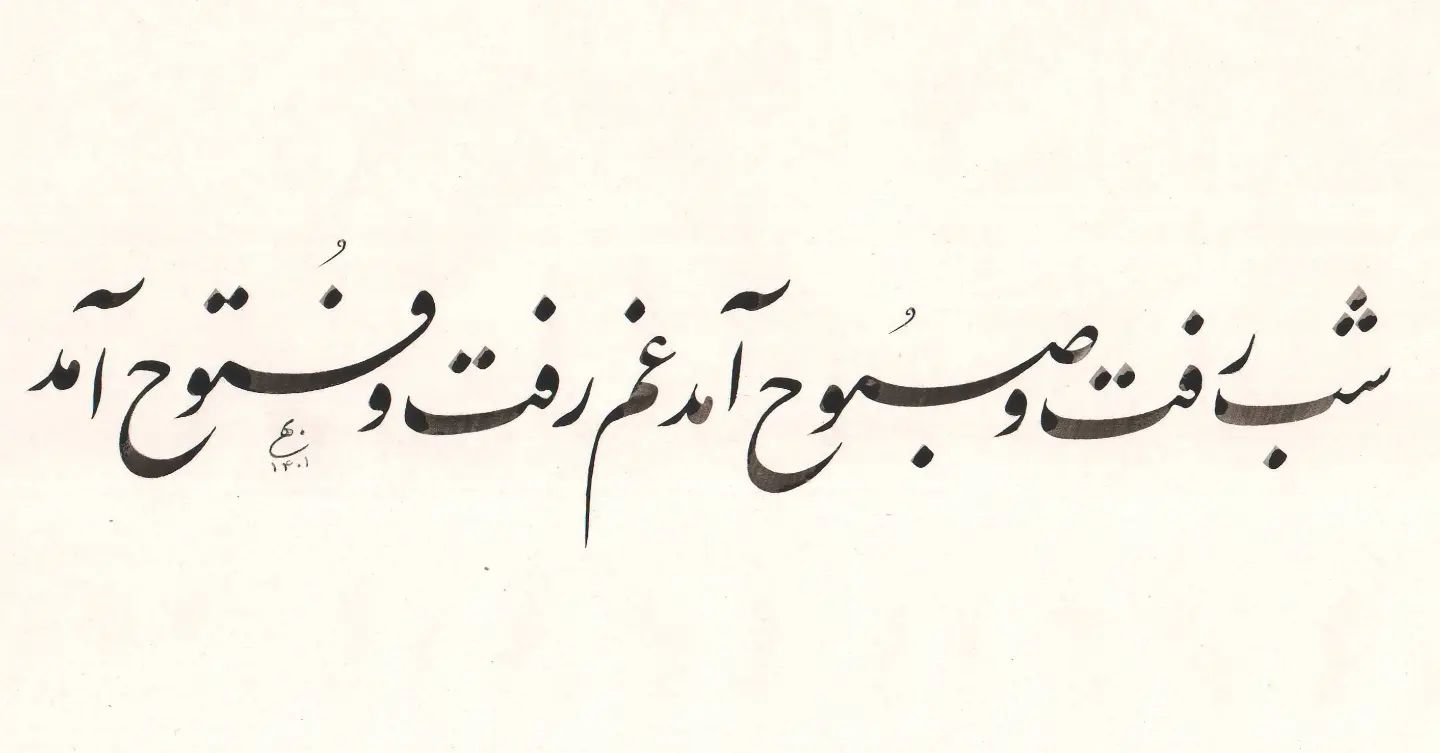 شب رفت و صبُوح آمد غم رفت و فُتوح آمد
۱۴۰۱